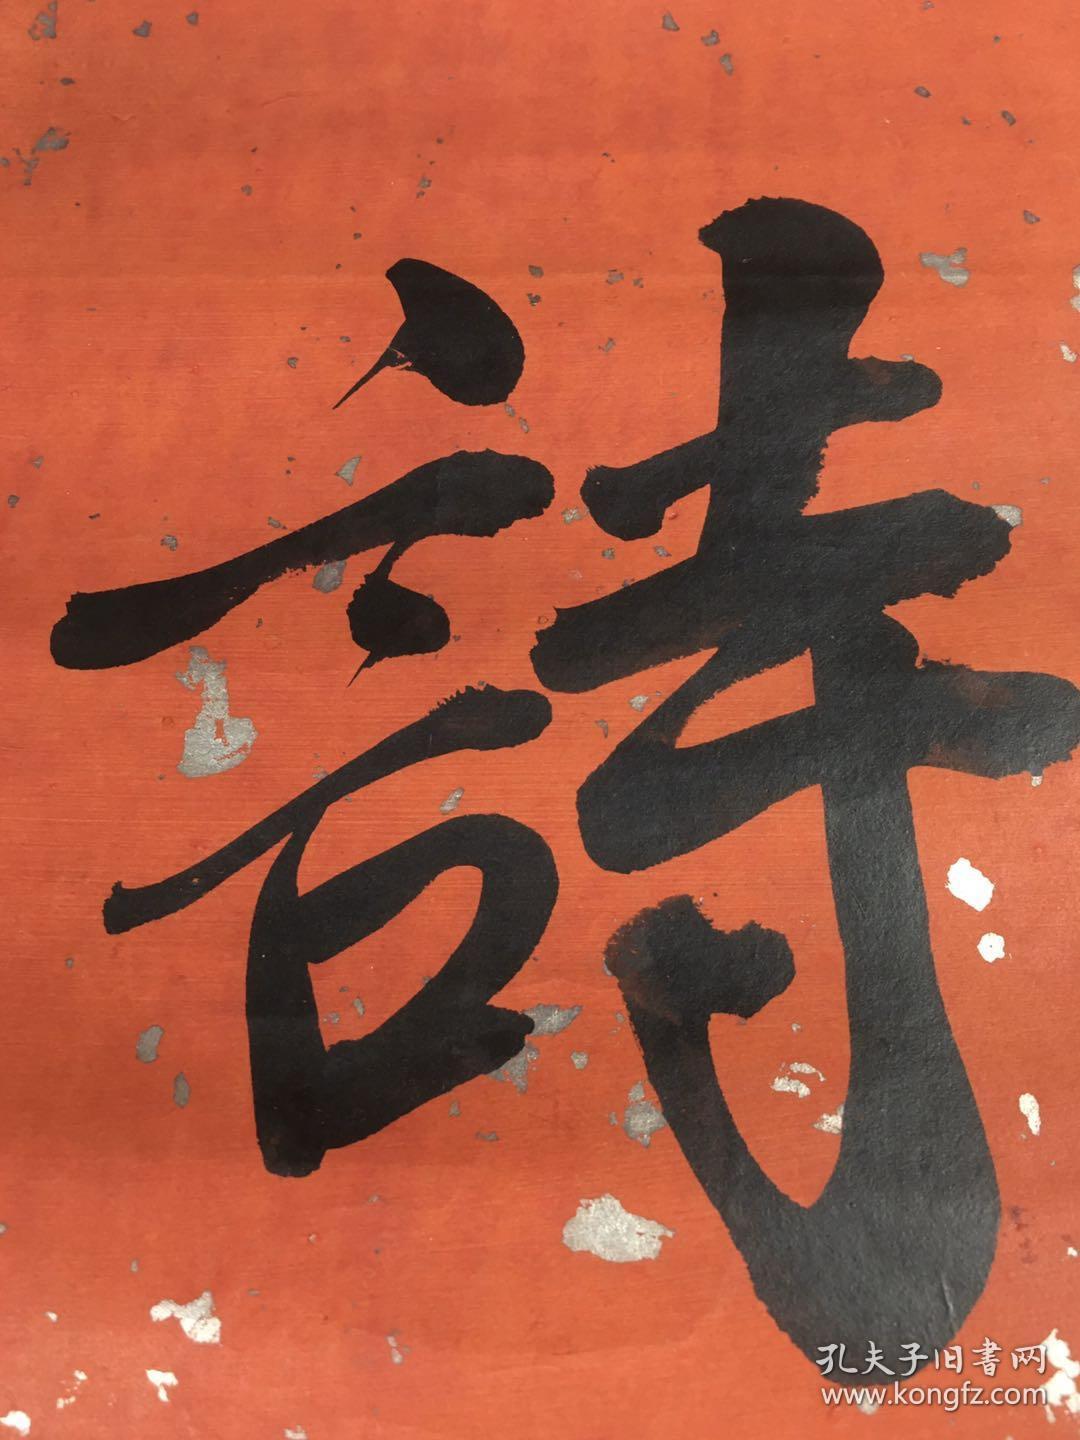 詩
孔夫子旧書网
www.kongfz.com